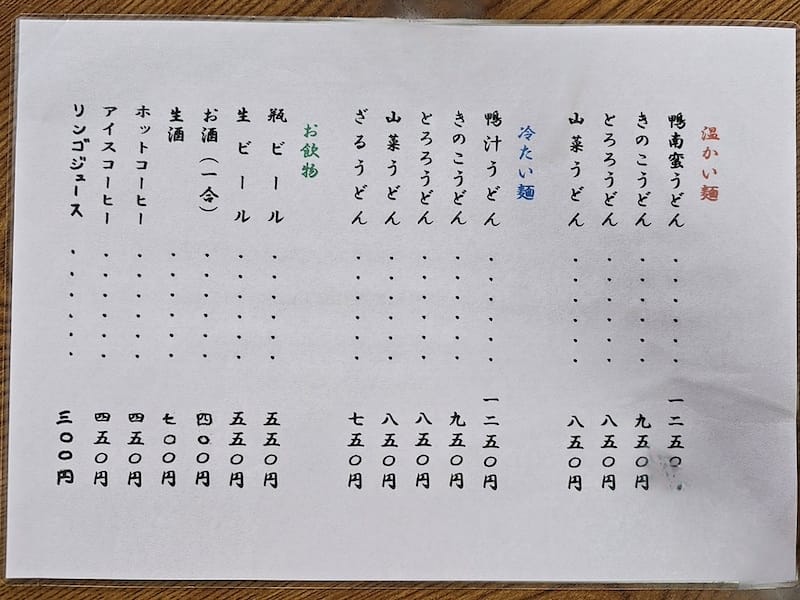 温かい麺
鴨南蛮うどん・・・・一二五〇
きのこうどん・・・・九五〇円
とろろうどん・・・・八五〇円
山菜うどん・・・・八五〇円
冷たい麺
鴨汁うどん・・・・一二五〇円
きのこうどん・・・・九五〇円
とろろうどん・・・・八五〇円
山菜うどん・・・・八五〇円
ざるうどん・・・・七五〇円
お飲物
瓶ビール・・・・五五〇円
生ビール・・・・五五〇円
お酒(一合)・・・・四〇〇円
生酒・・・・七〇〇円
ホットコーヒー・・・・四五〇円
アイスコーヒー・・・・四五〇円
リンゴジュース・・・・三〇〇円